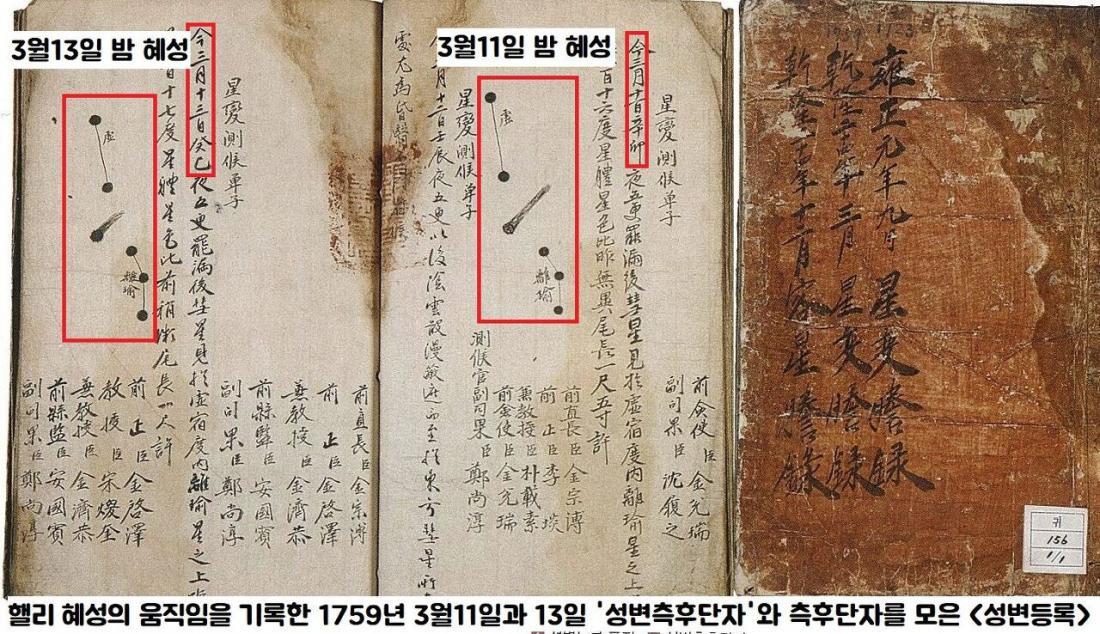 3월13일 밤 혜성
3월11일 밤 혜성
雍正元年九月 星變謄録
乾隆 三月 星變謄録
乾隆 年十二月 客星謄錄
귀
156
1/1
星變測候單子
前僉使臣 金兌瑞
副司果臣 沈履之
今三月十一日辛卯夜五更罷漏後彗星見於虛宿度內離瑜星之上
百十六度星體星色比昨無異尾長一尺五寸許
虛
離瑜
前直長臣 金宗溥
前正臣 李埮
兼教授臣 朴載素
前僉使臣 金兌瑞
測候官副司果臣 鄭尚淳
星變測候單子
月十二日壬辰夜五更以後陰雲散漫蔽 而至於東方彗星所
處尤爲昏翳
前直長臣 金宗溥
前正臣 金啓澤
兼教授臣 金濟恭
前縣監臣 安國賓
副司果臣 鄭尚淳
星變測候單子
今三月十三日癸巳夜五更罷漏後彗星見於虛宿度內離瑜星之上
百十七度星體星色比前稍微尾長一尺許
虛
離瑜
前正臣 金啓澤
教授臣 宋煥
兼教授臣 金濟恭
前縣監臣 安國賓
副司果臣 鄭尚淳
핼리 혜성의 움직임을 기록한 1759년 3월11일과 13일 '성변측후단자'와 측후단자를 모은 <성변등록>